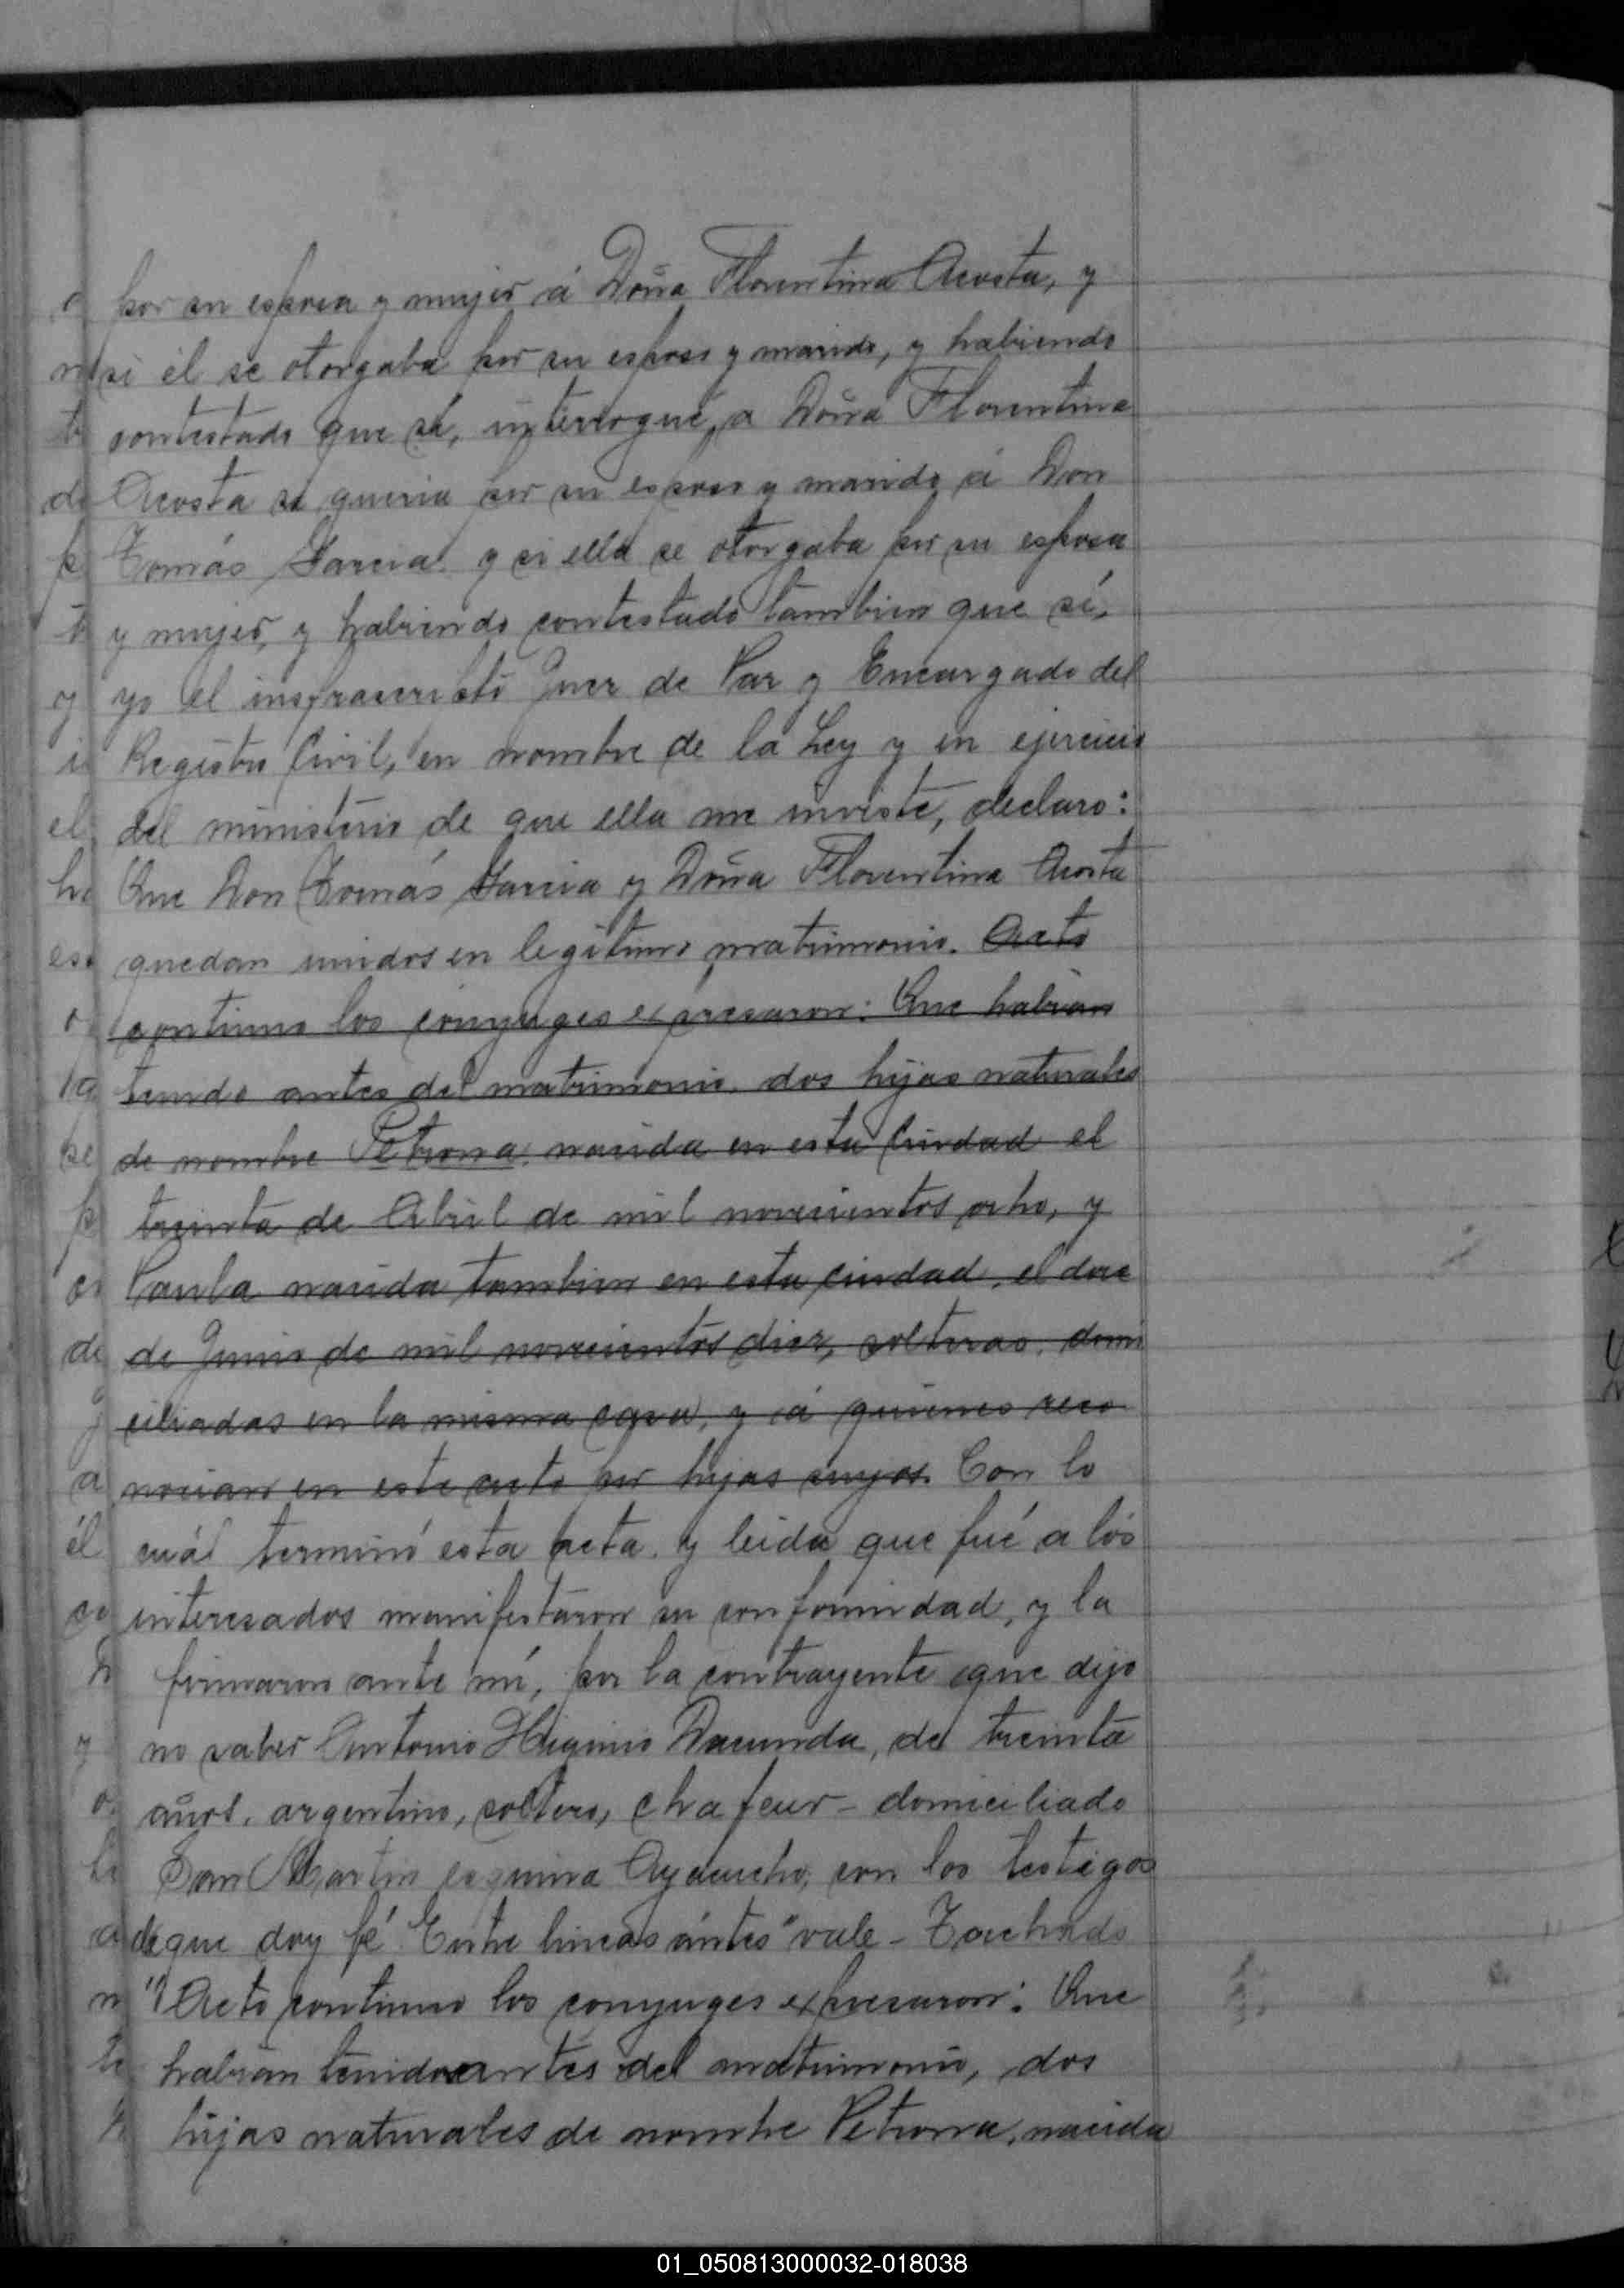 por su esposa y mujer á Doña Florentina Acosta, y
si él se otorgaba por su esposo y marido, y habiendo
contestado que sí, interrogué, a Doña Florentina
Acosta si queria por su esposo y marido á Don
Tomás Garcia y si ella se otorgaba por su esposa
y mujer, y habiendo contestado tambien que sí,
yo el insfrascripto Juez de Paz y Encargado del
Registro Civil, en nombre de la Ley y en ejercicio
del ministerio de que ella me inviste, declaro:
Que Don Tomás Garcia y Doña Florentina Acosta
quedan unidos en legítimo matrimonio. Acto
continuo los cónyuges expresaron: Que habian
tenido antes del matrimonio, dos hijas naturales
de nombre Petrona, nacida en esta Ciudad el
treinta de Abril de mil novecientos ocho, y
Paula nacida tambien en esta ciudad, el doce
de Junio de mil novecientos diez, solteras, domi
ciliadas en la misma casa, y á quienes reco
nocian en este acto por hijas suyas. Con lo
cuál terminó esta acta, y leida que fué a los
interesados manifestaron su conformidad, y la
firmaron ante mí, por la contrayente que dijo
no saber Antonio Higinio Dacunda, de treinta
años, argentino, soltero, chafeur - domiciliado
San Martin esquina Ayacucho, con los testigos
de que doy fé. Entre lineas "ántes" vale - Tachado
"Acto continuo los conyuges expresaron: Que
habian tenido antes del matrimonio, dos
hijas naturales de nombre Petrona, nacida
01_050813000032-018038